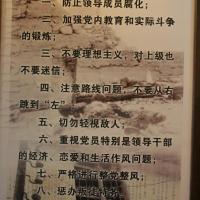 一、防止领导成员腐化；
二、加强党内教育和实际斗争
的锻炼；
三、不要理想主义，对上级也
不要迷信；
四、注意路线问题，不要从右
跳到“左”
五、切勿轻视敌人；
六、重视党员特别是领导干部
的经济、恋爱和生活作风问题；
七、严格进行整党整风；
八、惩办